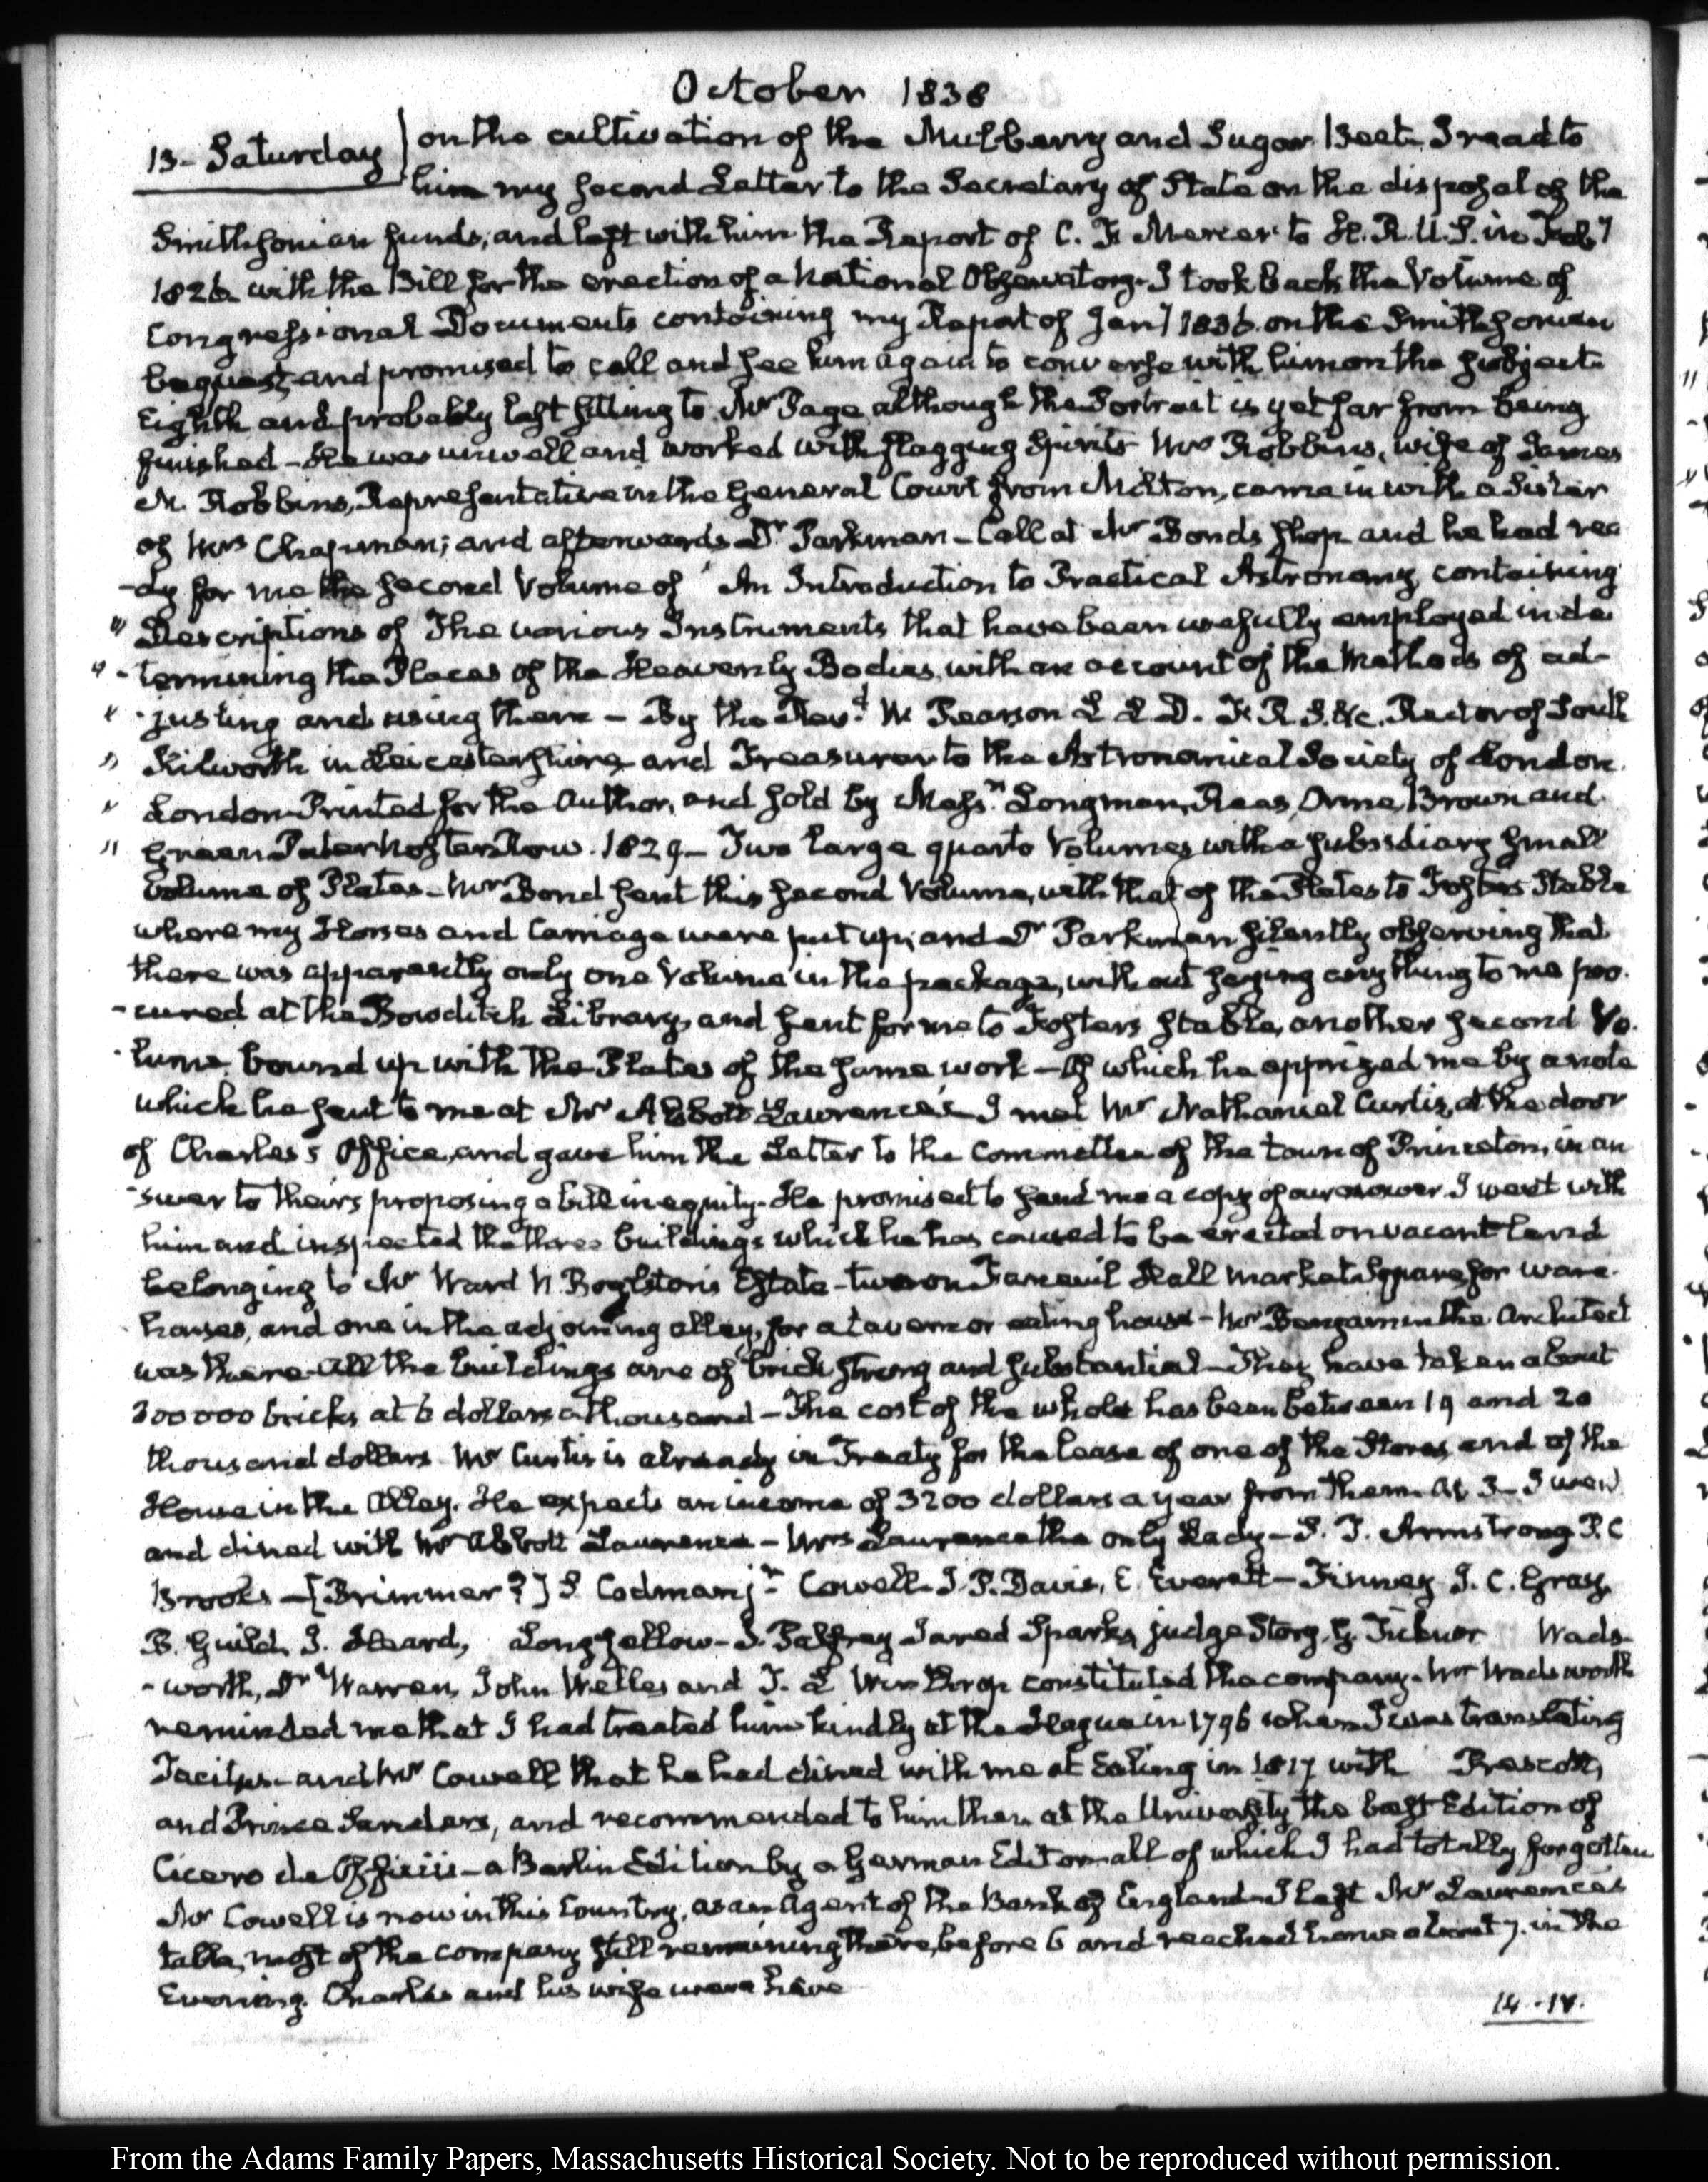 October 1838
13. Saturday
on the cultivation of the Mulberry and Sugar Beet. I read to
him my second Letter to the Secretary of State on the disposal of the
Smithsonian funds, and left with him the Report of C. F. Mercer to H. R. U.S. in Feby
1826 with the Bill for the erection of a National Observatory. I took back the Volume of
Congressional Documents containing my Report of Jany 1836 on the Smithsonian
bequest, and promised to call and see him again to converse with him on the subject.
Eighth and probably last sitting to Mr Page although the Portrait is yet far from being
finished - He was unwell and worked with flagging Spirits - Mrs Robbins, wife of James
M. Robbins, Representative in the General Court from Milton, came in with a Sister
of Mrs Chapman; and afterwards Dr Parkman - Call at Mr Bonds shop and he had rea
-dy for me the second Volume of "An Introduction to Practical Astronomy, containing
" Descriptions of The various Instruments that have been usefully employed in de
" -termining the Places of the Heavenly Bodies, with an account of the Methods of ad-
" -justing and using them - By the Revd. W Pearson L L D. F. R. S. &c. Rector of South
" Kilworth in Leicestershire, and Treasurer to the Astronomical Society of London.
" London Printed for the Author, and sold by Messrs Longman, Rees, Orme, Brown and
" Green Paternoster Row. 1829 - Two large quarto Volumes with a subsidiary small
volume of Plates - Mr Bond sent this second Volume, with that of the Plates to Fosters Stable
where my Horses and Carriage were put up; and Dr Parkman silently observing that
there was apparently only one Volume in the package, without saying any thing to me pro-
-cured at the Bowditch Library, and sent for me to Fosters stable, another second Vo-
-lume, bound up with the Plates of the same work - Of which he apprized me by a note
which he sent to me at Mr Abbott Lawrence's. I met Mr Nathaniel Curtis, at the door
of Charles's Office, and gave him the Letter to the Committee of the town of Princeton, in an
-swer to theirs proposing a bill in equity. He promised to send me a copy of our answer. I went with
him and inspected the three buildings which he has caused to be erected on vacant land
belonging to Mr Ward N. Boylston's Estate - two on Faneuil Hall Market Square, for ware-
-houses, and one in the adjoining alley, for a tavern or eating house - Mr Benjamin the Architect
was there. All the buildings are of brick strong and substantial - They have taken about
300000 bricks, at 6 dollars a thousand - The cost of the whole has been between 19 and 20
thousand dollars. Mr Curtis is already in Treaty for the lease of one of the Stores, and of the
House in the Alley. He expects an income of 3200 dollars a year from them. At 3 - I went
and dined with Mr Abbott Lawrence - Mrs Lawrence the only Lady - S. T. Armstrong P. C
Brooks - [Brimmer?] S. Codman jr Cowell - J. P. Davis, E. Everett - Finney J. C. Gray,
B. Guild, J. Heard, Longfellow - J. Palfrey Jared Sparks, judge Story, G. Ticknor Wads-
-worth, Dr Warren, John Welles and T. L Winthrop constituted the company. Mr Wadsworth
reminded me that I had treated him kindly at the Hague in 1796 when I was translating
Tacitus - and Mr Cowell that he had dined with me at Ealing in 1817 with Prescott,
and Prince Sanders, and recommended to him then at the University the best Edition of
Cicero de Officiis - a Berlin Edition by a German Editor - all of which I had totally forgotten
Mr Cowell is now in this Country, as an Agent of the Bank of England - I left Mr Lawrence's
table, most of the company still remaining there, before 6 and reached home about 7. in the
Evening. Charles and his wife were here
14.-IV.
From the Adams Family Papers, Massachusetts Historical Society. Not to be reproduced without permission.